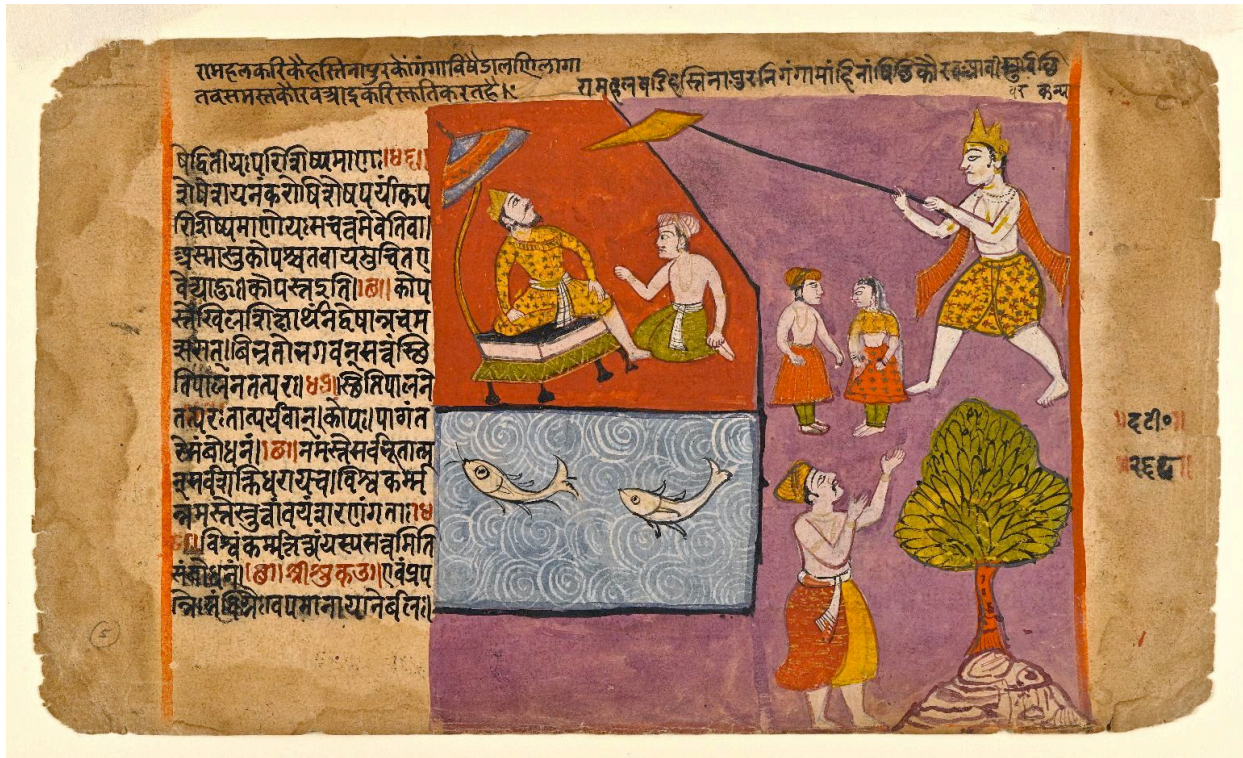 रामहलकरिकैहस्तिनापुरकोगंगाविषैडालणिलागा
तवसमस्तकौरवआइकरिस्तुतिकरतहै।
रामहलषडिहस्तिनापुरनिगंगामांहिनांषिछिकौरवआवीस्तुतिछि
वर कन्या
षेद्वितीयःपरिशिष्यमाणः॥४६॥
शेषेशयनंकरोषिशेषपर्यीकप
रिशिष्यमाणोयःसचत्वमेवेतिवा।
अस्मासुकोपश्चतवायमुचितए
वेत्याहुःकोपस्तइति॥छ॥कोप
स्तेखिलशिक्षार्थंनद्वेषान्नचम
त्सरात्।बिभ्रतोभगवन्सत्वंस्थि
तिपालनतत्परः॥४७॥स्थितिपालने
तत्परःतात्पर्यवान्।कोपः।
संबोधनं॥छ॥नमस्तेसर्वभूतात्म
न्सर्वशक्तिधराव्यय।विश्वकर्म्म
न्नमस्तेस्तुत्वांवयंशरणंगताः॥४
८॥विश्वंकर्म्मयस्यसत्वमिति
संबोधनं॥छ॥श्रीशुकउ॥एवंप्रप
न्नैःसंविग्नैःवेपमानायनैर्बलः।
॥द टी॰॥
५